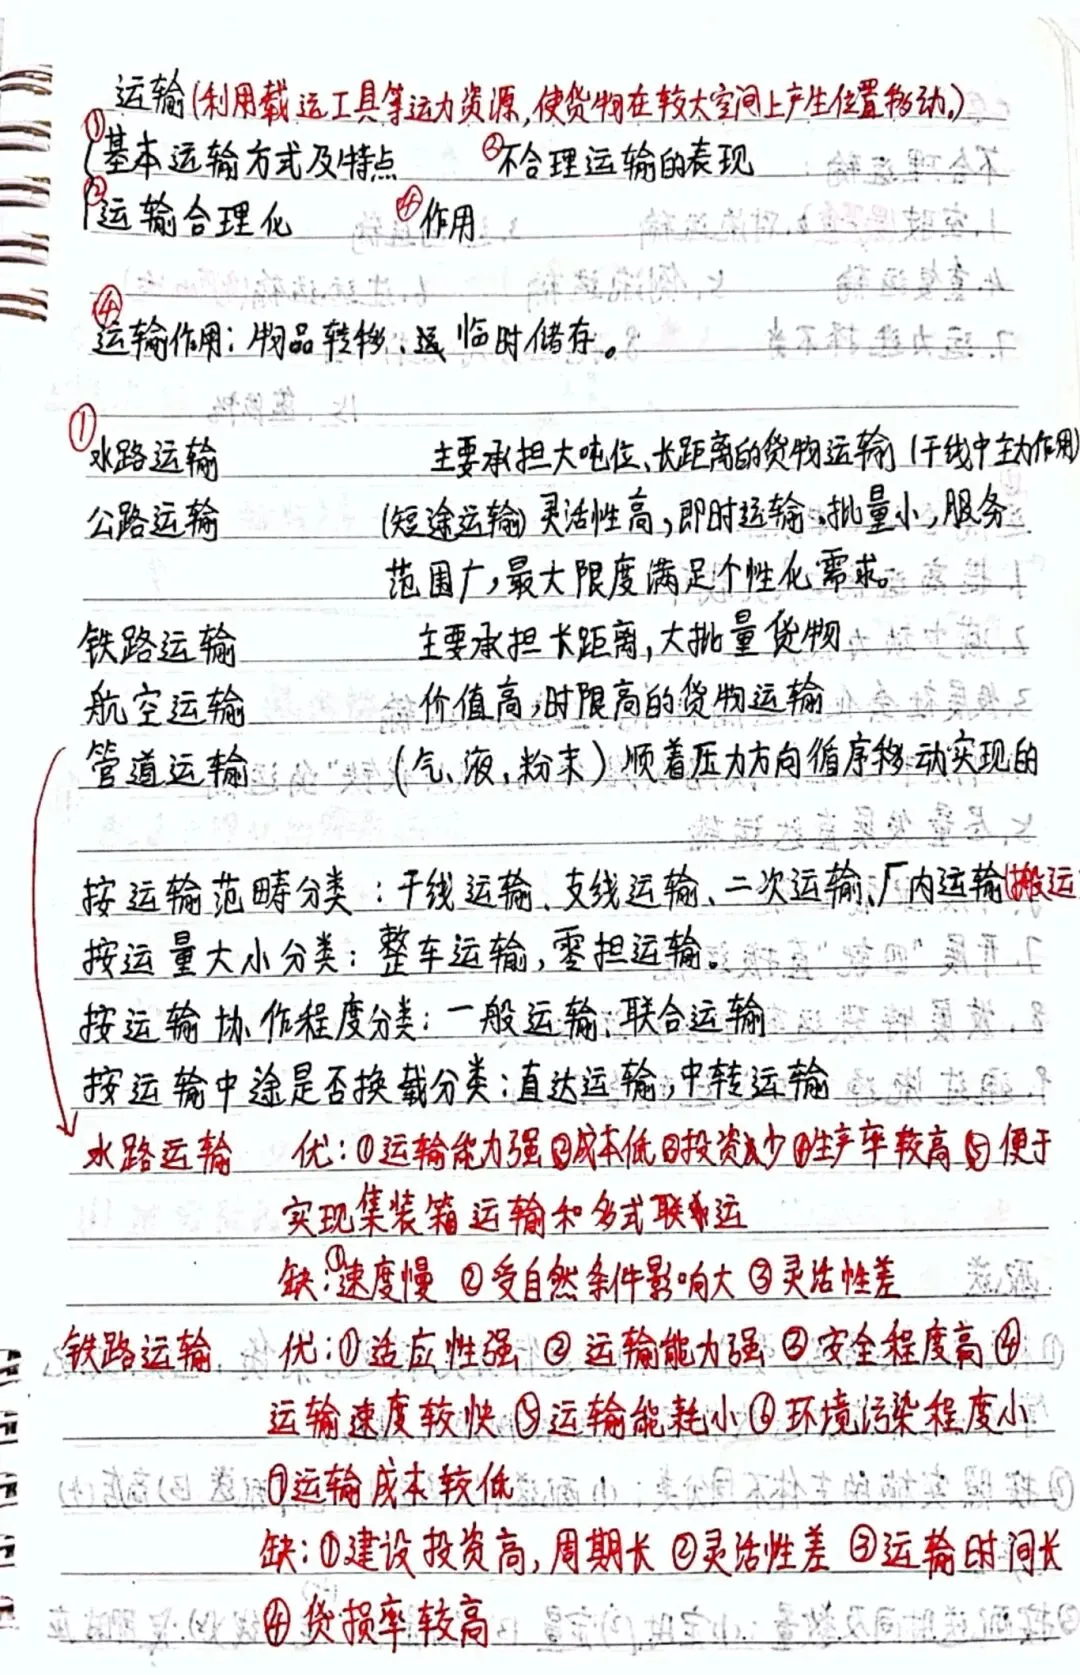 运输(利用载运工具等运力资源,使货物在较大空间上产生位置移动。)
①基本运输方式及特点 ③不合理运输的表现
②运输合理化 ④作用
④
运输作用:物品转移、临时储存。
①
水路运输 主要承担大吨位、长距离的货物运输(干线中主力作用)
公路运输 (短途运输)灵活性高,即时运输,批量小,服务
范围广,最大限度满足个性化需求。
铁路运输 主要承担长距离,大批量货物
航空运输 价值高,时限高的货物运输
管道运输 (气、液、粉末)顺着压力方向循序移动实现的
按运输范畴分类:干线运输、支线运输、二次运输、厂内运输(搬运
按运量大小分类:整车运输,零担运输。
按运输协作程度分类:一般运输、联合运输
按运输中途是否换载分类:直达运输,中转运输
水路运输 优:①运输能力强②成本低③投资少④生产率较高⑤便于
实现集装箱运输和多式联运
缺:①速度慢 ②受自然条件影响大 ③灵活性差
铁路运输 优:①适应性强 ②运输能力强 ③安全程度高 ④
运输速度较快 ⑤运输能耗小 ⑥环境污染程度小
⑦运输成本较低
缺:①建设投资高,周期长 ②灵活性差 ③运输时间长
④货损率较高